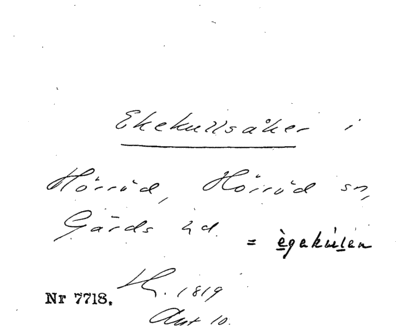 Ekekullsåker i
Hörröd, Hörröd sn,
Gärds hd. = ègakùlen
Nr 7718. H. 1819
Akt 10.